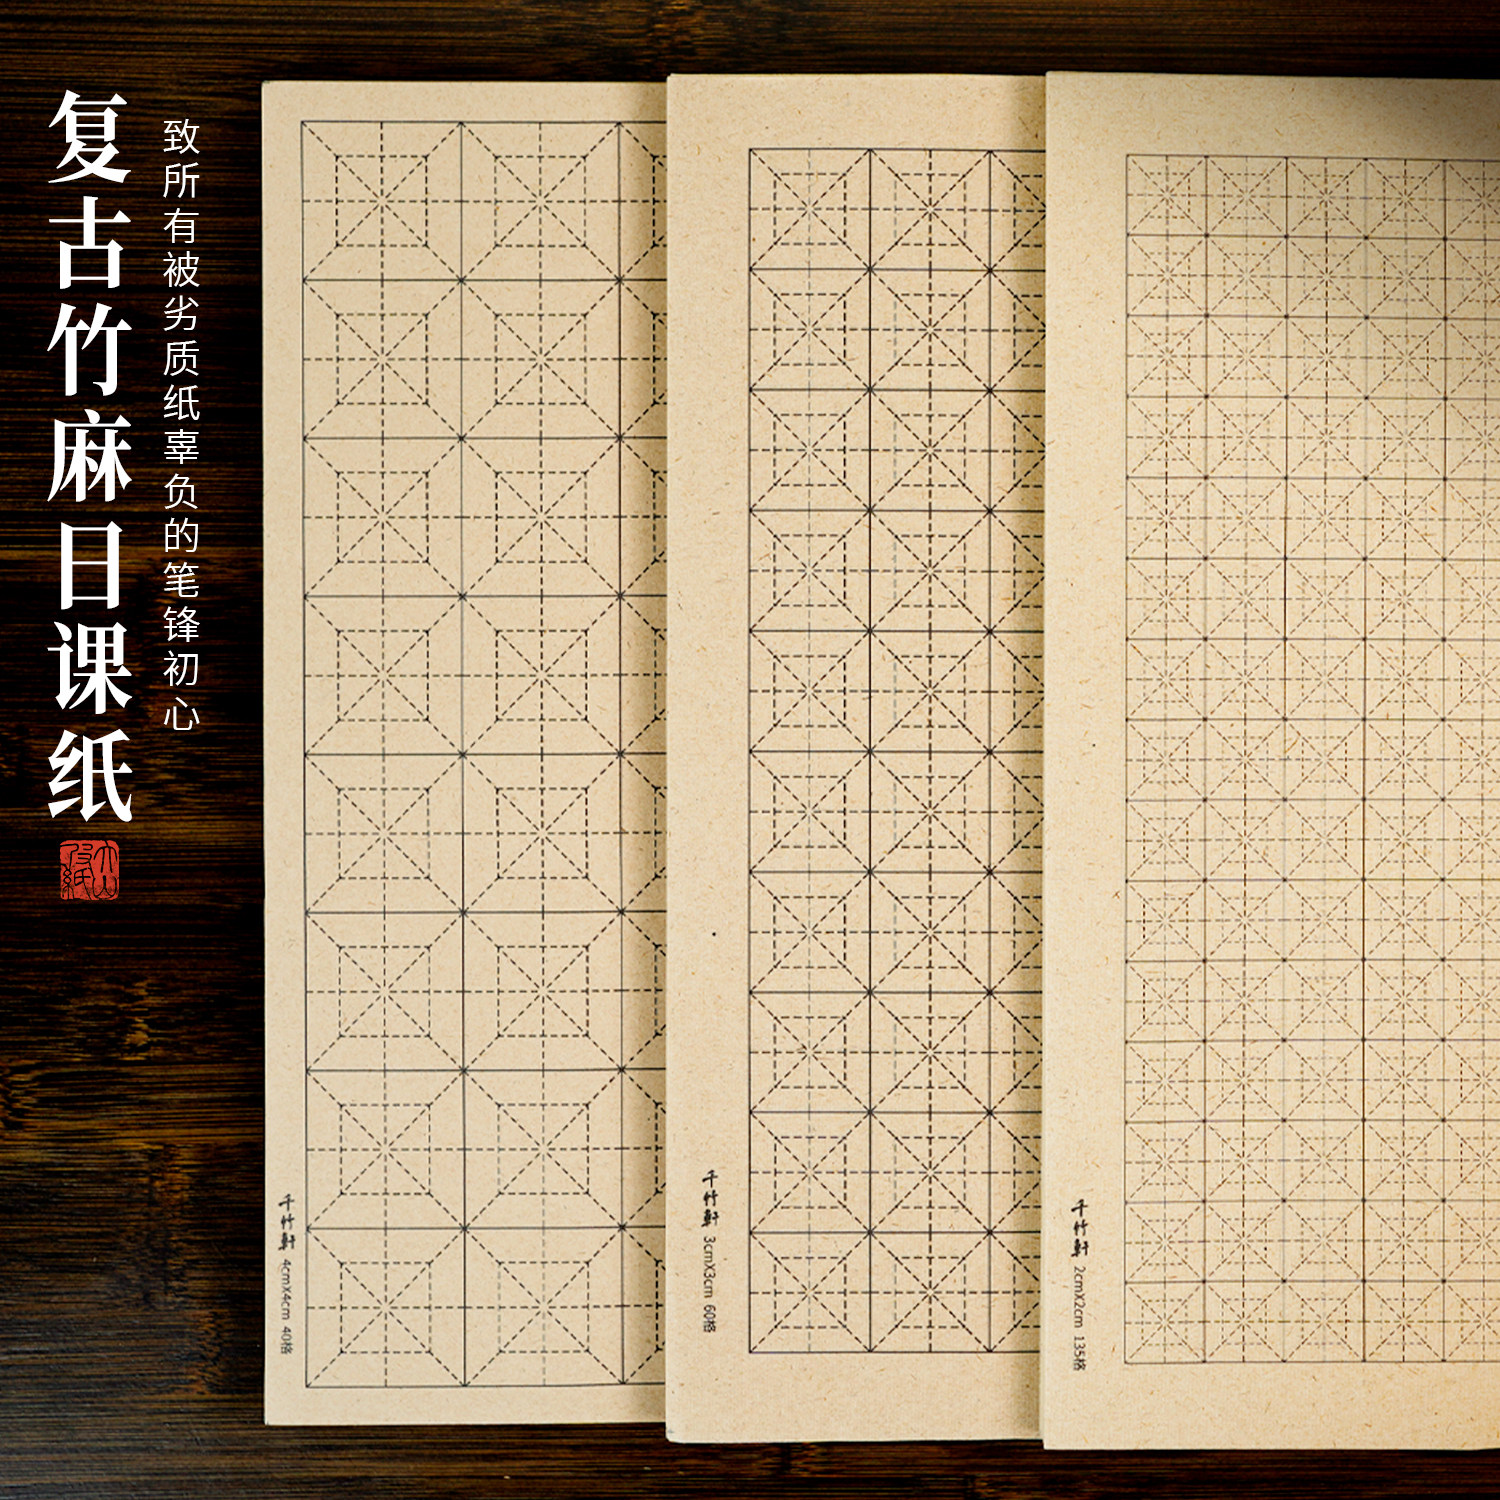 复古竹麻日课纸
致所有被劣质纸辜负的笔锋初心
千竹軒 4cmX4cm 40格
千竹軒 3cmX3cm 60格
千竹軒 2cmX2cm 135格